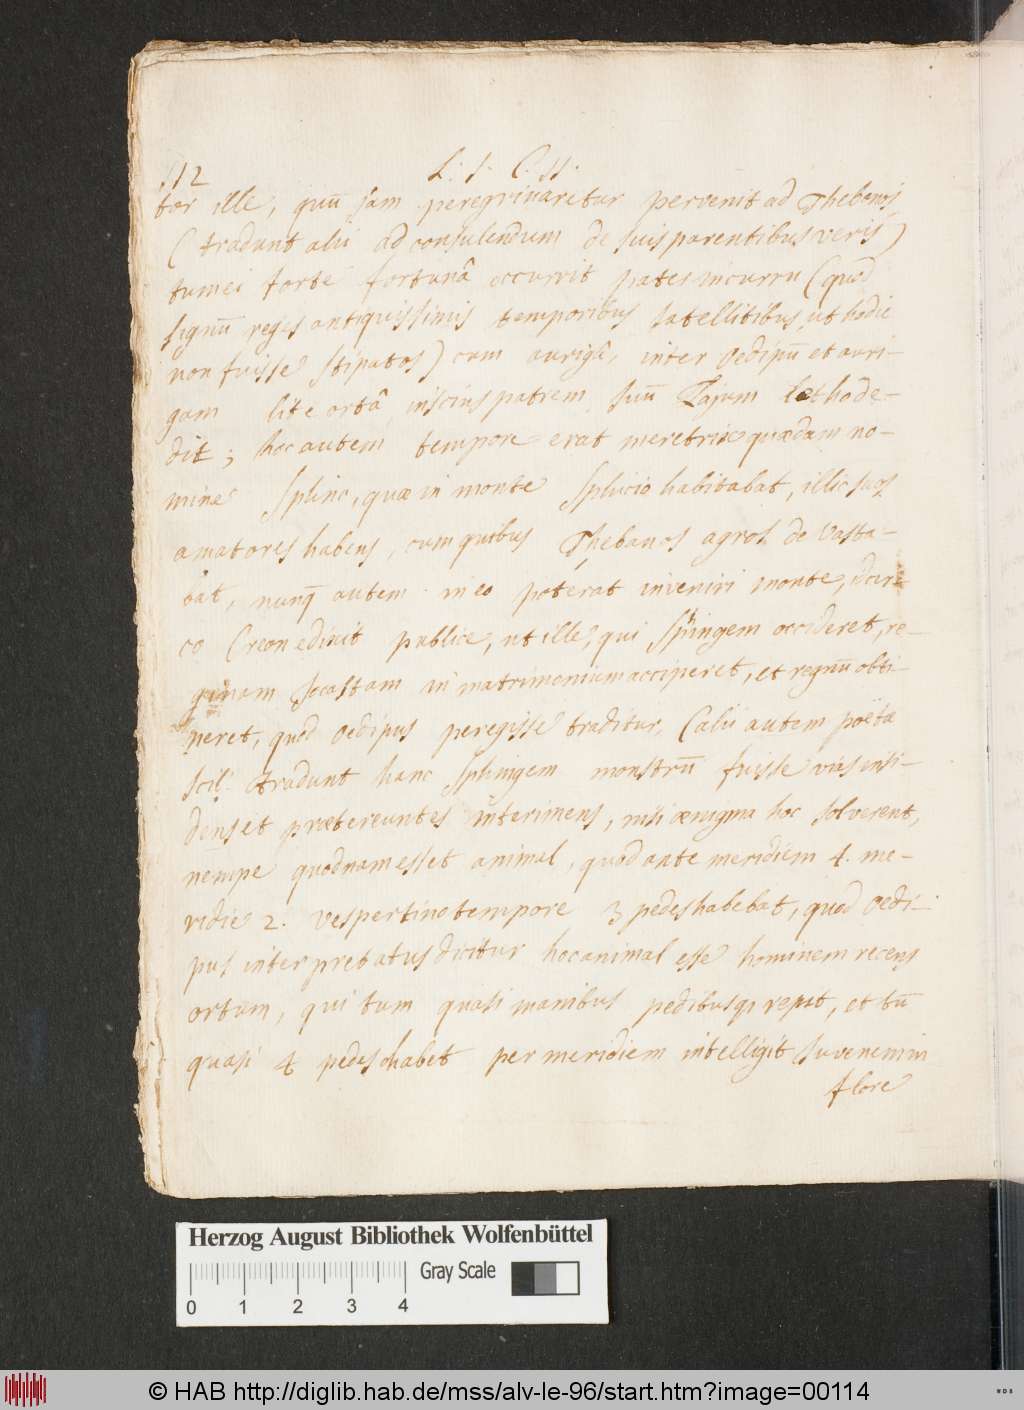 112 L. 1. C. 11.
tor ille, quū jam peregrinaretur pervenit ad Thebanos
(tradunt alii ad consulendum de suis parentibus veris)
tum ei forte fortunâ occurrit pater in curru (quod
signū reges antiquissimis temporibus satellitibus ut hodie
non fuisse stipatos) cum aurigâ, inter Oedipū et auri-
gam lite ortâ inscius patrem suū Lajum letho de-
dit; hoc autem tempore erat meretrix quædam no-
mine Sphinx, quæ in monte habitabat, illic suos
amatores habens, cum quibus Thebanos agros devasta-
bat, nunq̄ autem in eo poterat inveniri monte, idcir-
co Creon edixit publice, ut ille, qui Sphingem occideret, re-
ginam Jocastam in matrimonium acciperet, et regnū obti-
neret, quod Oedipus peregisse traditur, (alii autem poëtæ
scil. tradunt hanc Sphingem monstrū fuisse vias insi-
dens et prætereuntes interimens, nisi ænigma hoc solverent,
nempe quodnam esset animal, quod ante meridiem 4. me-
ridie 2. vespertino tempore 3 pedes habebat, quod Oedi-
pus interpretatus dicitur hoc animal esse hominem recens
ortum, qui tum quasi manibus pedibusq; repit, et tū
quasi 4 pedes habet per meridiem intelligit Juvenem in
flore
Herzog August Bibliothek Wolfenbüttel
Gray Scale
0 1 2 3 4
© HAB http://diglib.hab.de/mss/alv-le-96/start.htm?image=00114